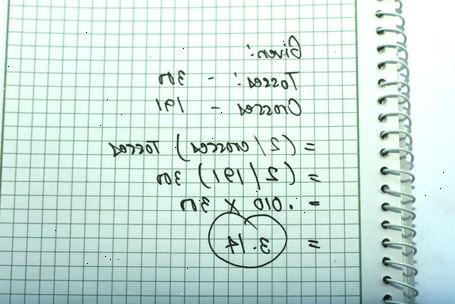 Given:
Tosses: - 300
Crosses - 191
= (2/crosses) Tosses
= (2/191) 300
= .010 x 300
= 3.14